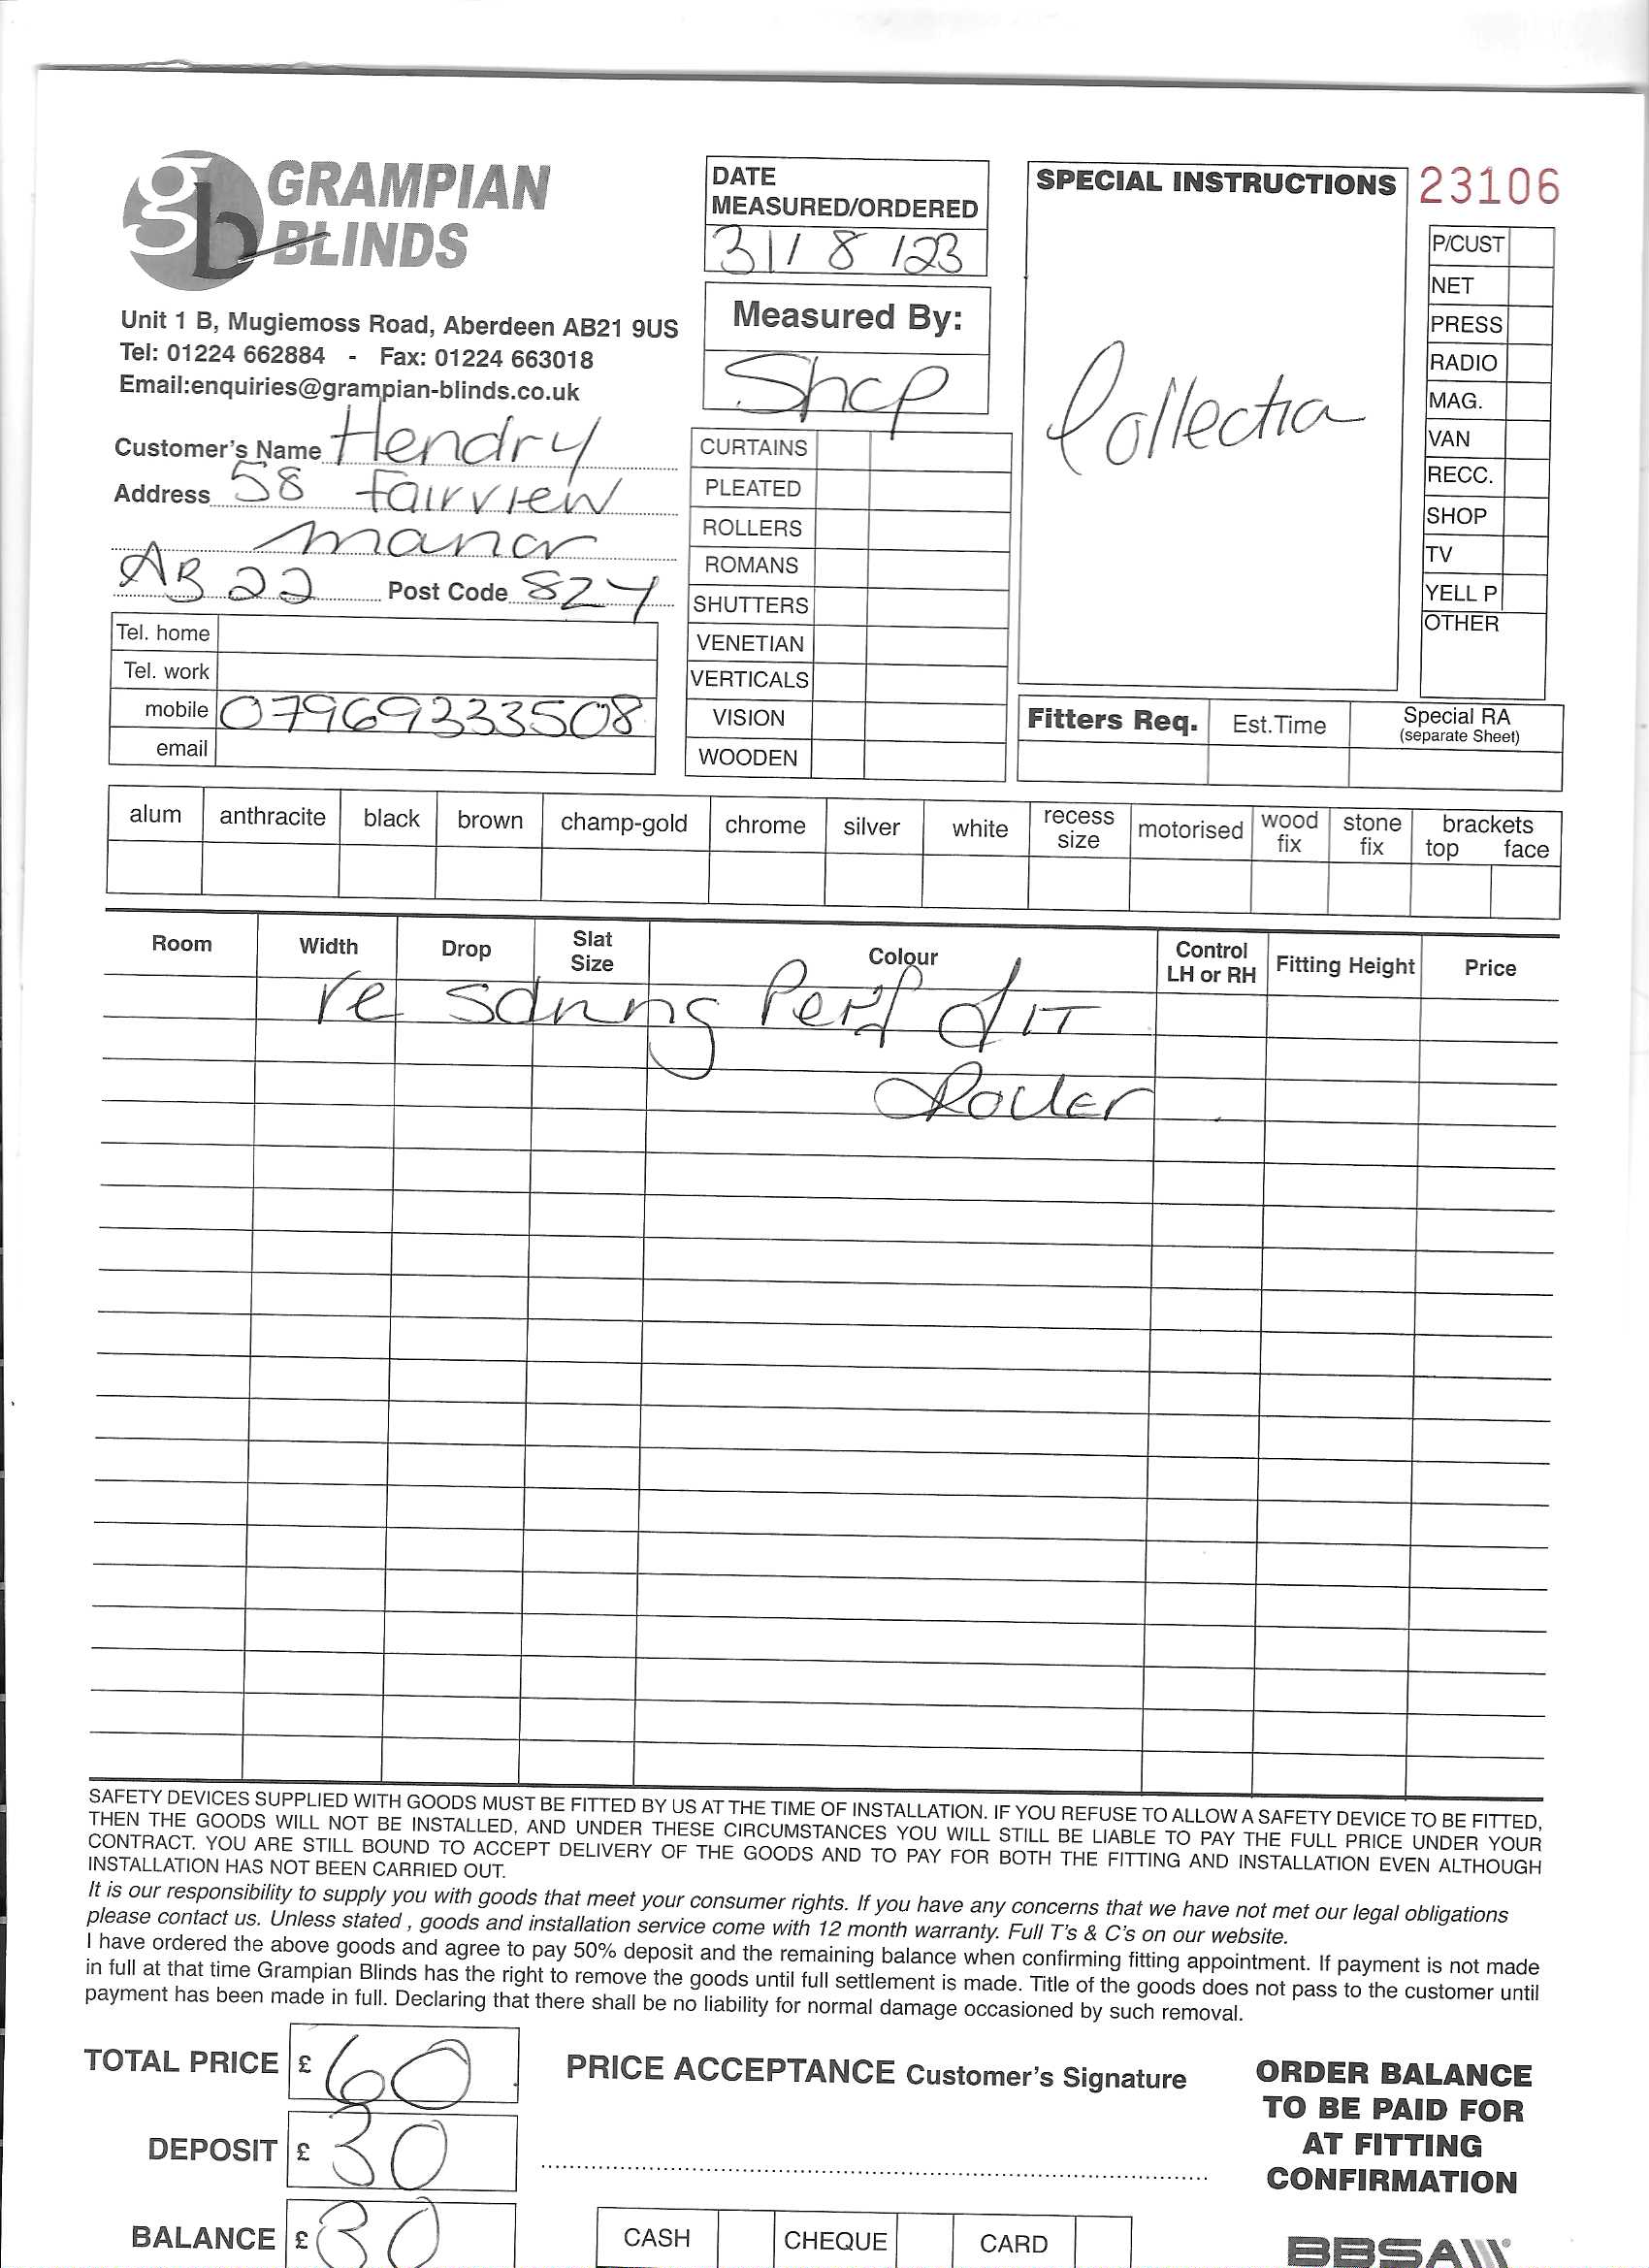 GRAMPIAN
BLINDS
Unit 1 B, Mugiemoss Road, Aberdeen AB21 9US
Tel: 01224 662884 - Fax: 01224 663018
Email:enquiries@grampian-blinds.co.uk
Customer's Name Hendry
Address 58 Fairview
Manor
AB22 Post Code 8ZY
Tel. home
Tel. work
mobile 07969333508
email
DATE
MEASURED/ORDERED
31/8/23
Measured By:
Shop
CURTAINS
PLEATED
ROLLERS
ROMANS
SHUTTERS
VENETIAN
VERTICALS
VISION
WOODEN
SPECIAL INSTRUCTIONS
Collectio
23106
P/CUST
NET
PRESS
RADIO
MAG.
VAN
RECC.
SHOP
TV
YELL P
OTHER
Fitters Req. Est.Time Special RA
(separate Sheet)
alum anthracite black brown champ-gold chrome silver white recess size motorised wood fix stone fix brackets top face
Room Width Drop Slat Size Colour Control LH or RH Fitting Height Price
re Perf fIT
Roller
SAFETY DEVICES SUPPLIED WITH GOODS MUST BE FITTED BY US AT THE TIME OF INSTALLATION. IF YOU REFUSE TO ALLOW A SAFETY DEVICE TO BE FITTED,
THEN THE GOODS WILL NOT BE INSTALLED, AND UNDER THESE CIRCUMSTANCES YOU WILL STILL BE LIABLE TO PAY THE FULL PRICE UNDER YOUR
CONTRACT. YOU ARE STILL BOUND TO ACCEPT DELIVERY OF THE GOODS AND TO PAY FOR BOTH THE FITTING AND INSTALLATION EVEN ALTHOUGH
INSTALLATION HAS NOT BEEN CARRIED OUT.
It is our responsibility to supply you with goods that meet your consumer rights. If you have any concerns that we have not met our legal obligations
please contact us. Unless stated , goods and installation service come with 12 month warranty. Full T's & C's on our website.
I have ordered the above goods and agree to pay 50% deposit and the remaining balance when confirming fitting appointment. If payment is not made
in full at that time Grampian Blinds has the right to remove the goods until full settlement is made. Title of the goods does not pass to the customer until
payment has been made in full. Declaring that there shall be no liability for normal damage occasioned by such removal.
TOTAL PRICE £ 60
DEPOSIT £ 30
BALANCE £ 30
PRICE ACCEPTANCE Customer's Signature
CASH CHEQUE CARD
ORDER BALANCE
TO BE PAID FOR
AT FITTING
CONFIRMATION
BBSA